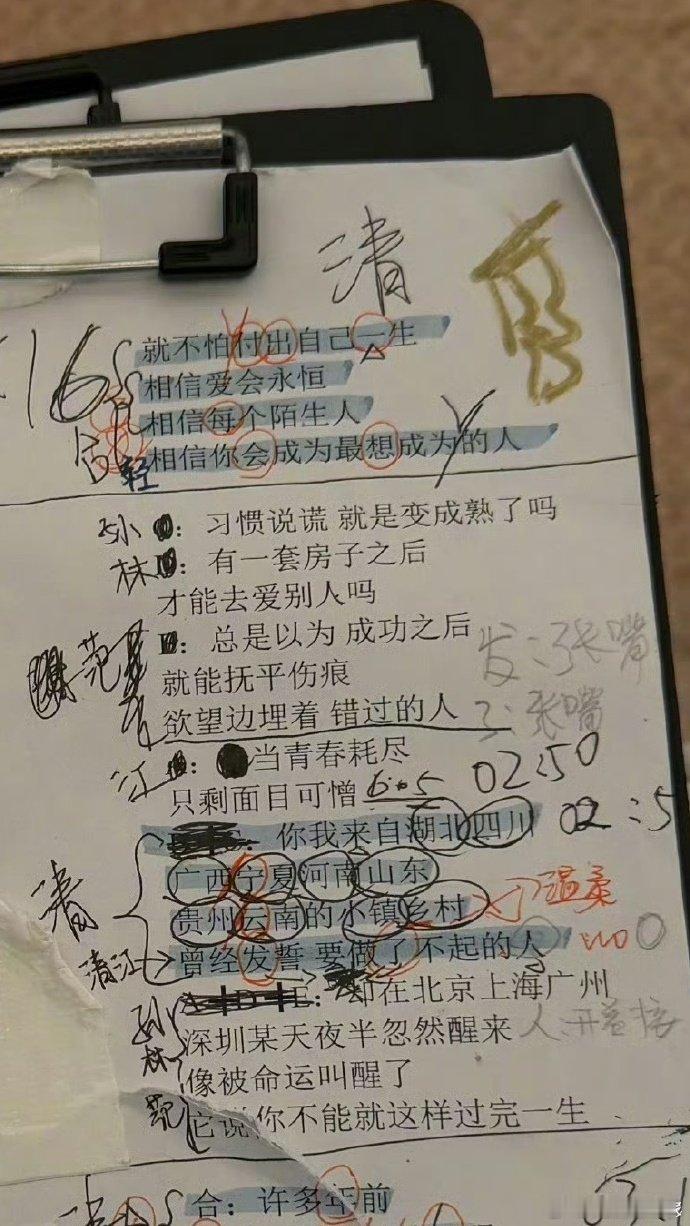 清
16
就不怕付出自己一生
相信爱会永恒
相信每个陌生人
合
轻
相信你会成为最想成为的人
孙：习惯说谎 就是变成熟了吗
林：有一套房子之后
才能去爱别人吗
范：总是以为 成功之后
就能抚平伤痕
发：张嘴
欲望边埋着 错过的人
张嘴
江：当青春耗尽
02:50
只剩面目可憎
02:5
清
你我来自湖北四川
广西宁夏河南山东
贵州云南的小镇乡村
温柔
清江
曾经发誓 要做了不起的人
却在北京上海广州
孙
林
范
深圳某天夜半忽然醒来
像被命运叫醒了
它说你不能就这样过完一生
合：许多年前